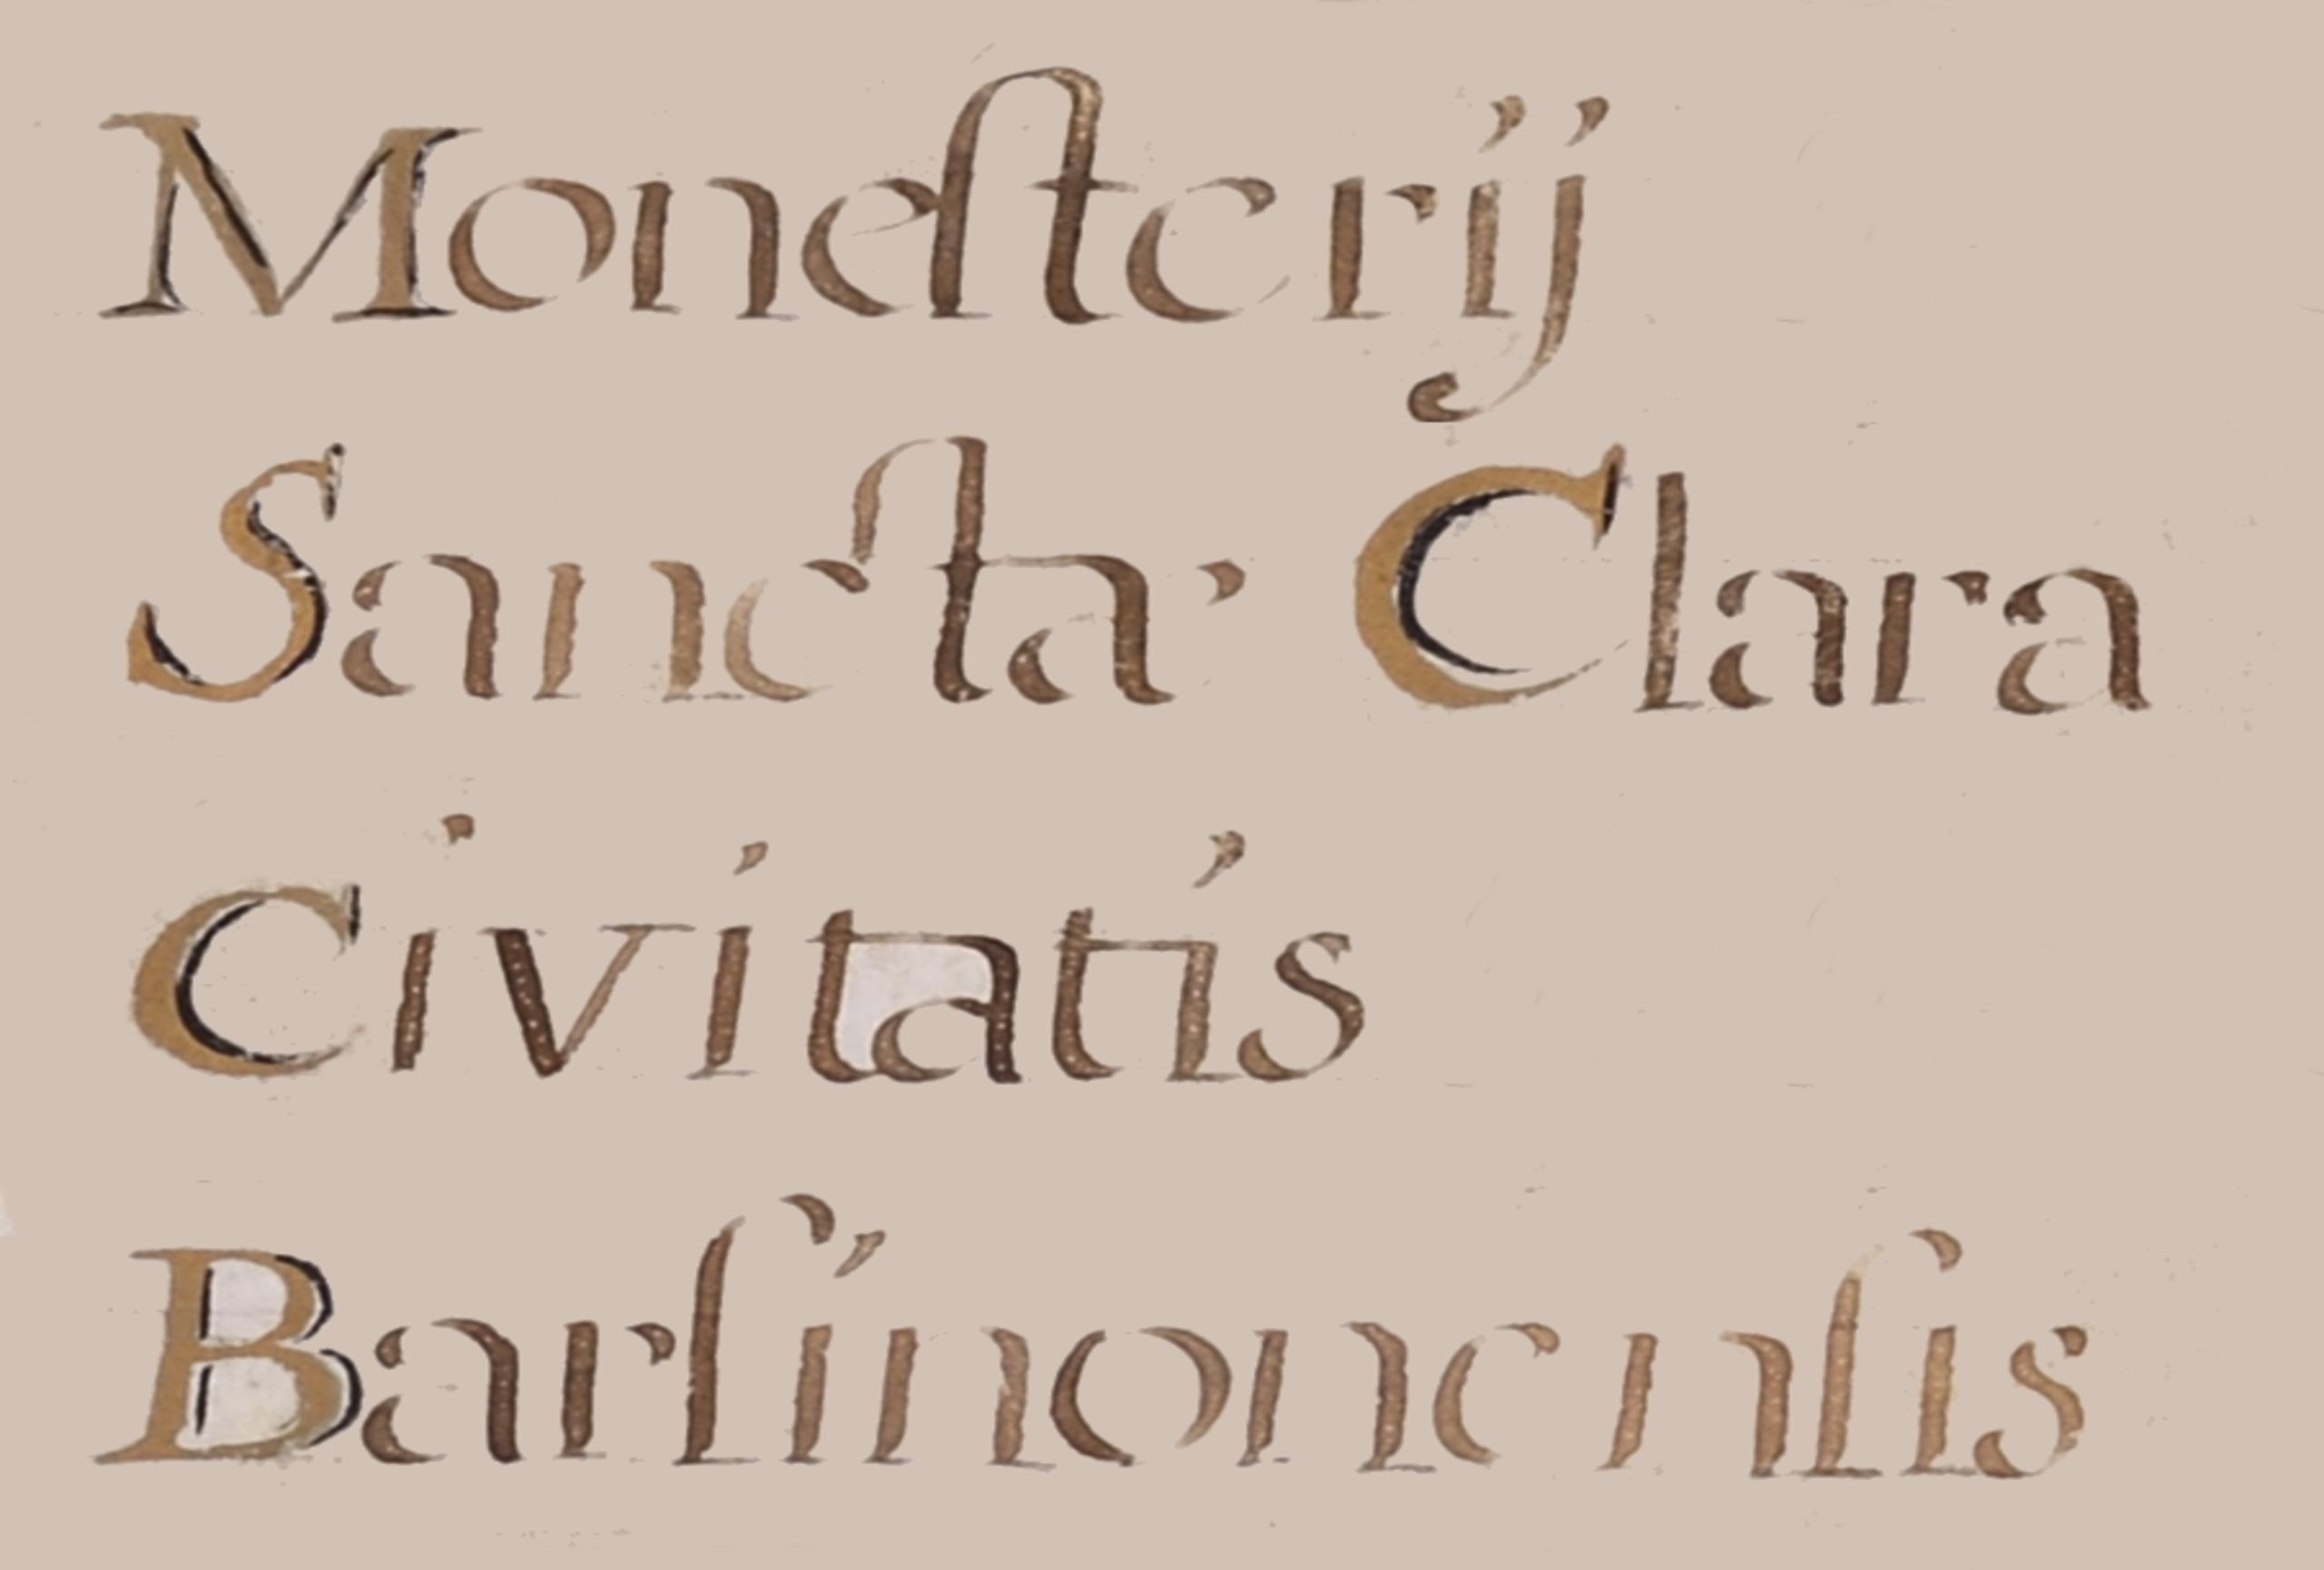 Moneſterij
Sanctar Clara
Civitatis
Barſinonenſis